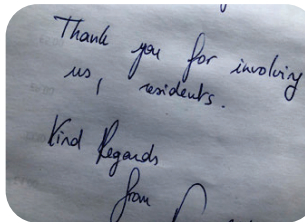 Thank you for involving
us, residents.
Kind Regards
from